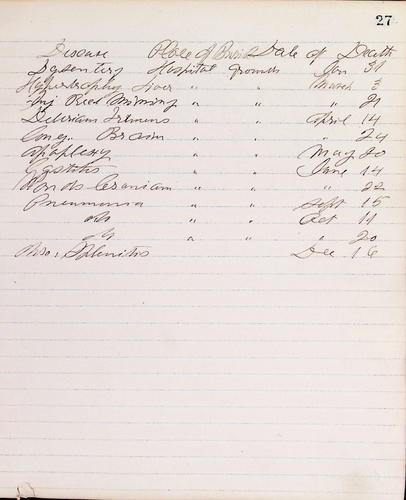 27
Disease Place of Burial Date of Death
Dysentery Hospital grounds Jan 31
Hypertrophy Liver " " March 3
Inj Rec'd Mining " " " 21
Delirium Tremens " " April 14
Cong. Brain " " " 24
Apoplexy " " May 20
Gastritis " " June 14
Wounds Cranium " " " 22
Pneumonia " " Sept 15
do " " Oct 11
do " " " 20
Splenitis Dec 16